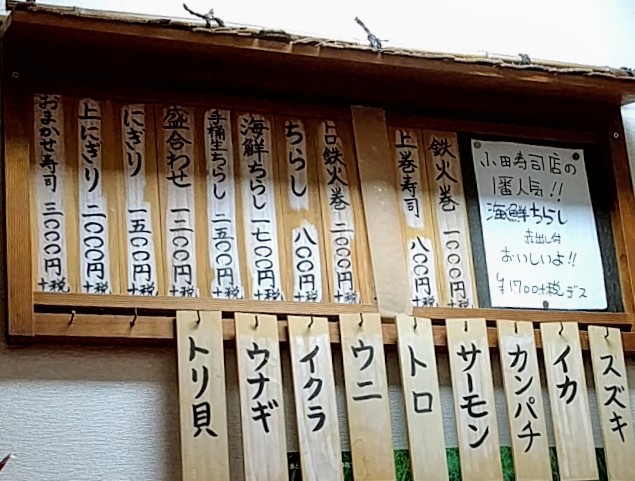 鉄火巻 一〇〇〇円+税
上巻寿司 八〇〇円+税
トロ鉄火巻 二〇〇〇円+税
ちらし 八〇〇円+税
海鮮ちらし 一七〇〇円+税
手桶生ちらし 二五〇〇円+税
盛合わせ 一二〇〇円+税
にぎり 一五〇〇円+税
上にぎり 二〇〇〇円+税
おまかせ寿司 三〇〇〇円+税
小田寿司店の
1番人気!!
海鮮ちらし
赤出し付
おいしいよ!!
¥1700+税デス
スズキ
イカ
カンパチ
サーモン
トロ
ウニ
イクラ
ウナギ
トリ貝